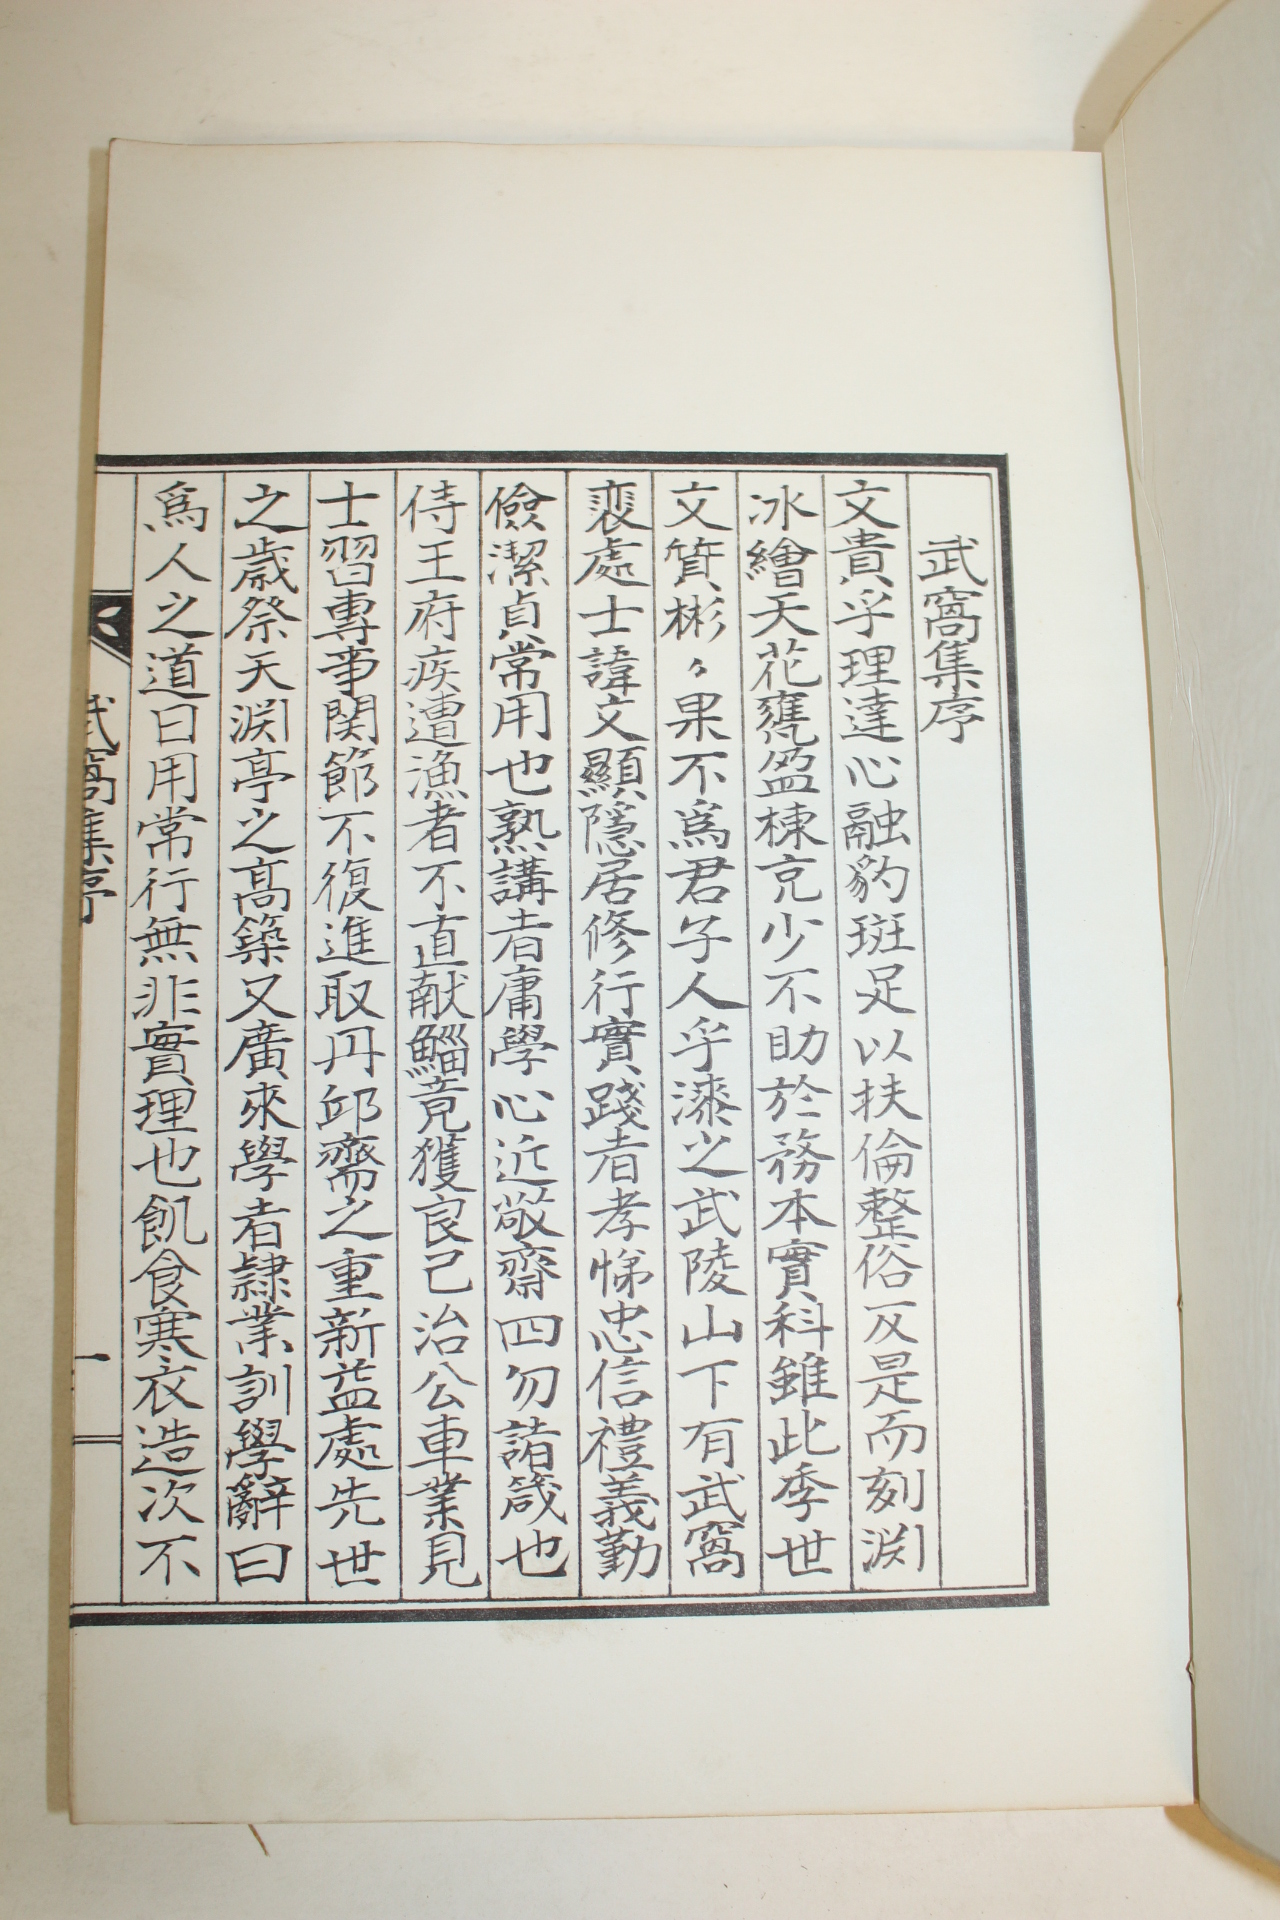 武窩集序
文貴乎理達心融豹斑足以扶倫整俗反是而刻渊
冰繪天花甕盈棟充少不助於務本實科雖此季世
文質彬々果不為君子人乎漆之武陵山下有武窩
裵處士諱文顯隱居修行實踐者孝悌忠信禮義勤
儉潔貞常用也熟講者庸學心近敬齋四勿諸箴也
侍王府疾遭漁者不直献鯔竟獲良己治公車業見
士習專事関節不復進取丹邱齋之重新盖處先世
之歲祭天渊亭之高築又廣來學者隷業訓學辭曰
為人之道日用常行無非實理也飢食寒衣造次不
武窩集序
一